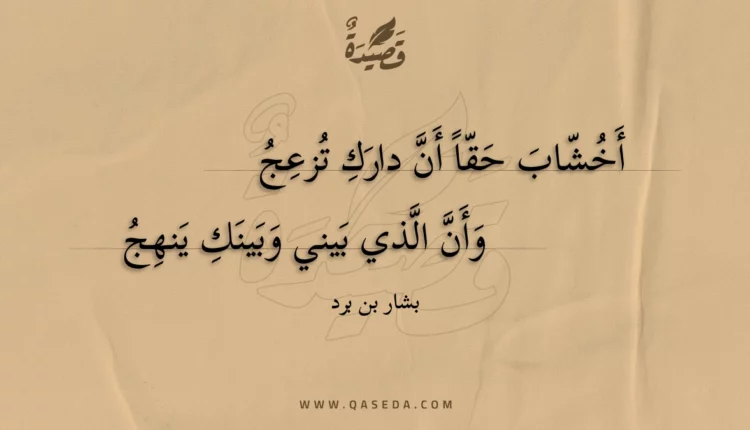 قَصِيْدَةٌ
أَخُشّابَ حَقّاً أَنَّ دارَكِ تُزعِجُ
وَأَنَّ الَّذي بَيني وَبَينَكِ يَنهِجُ
بشار بن برد
WWW.QASEDA.COM